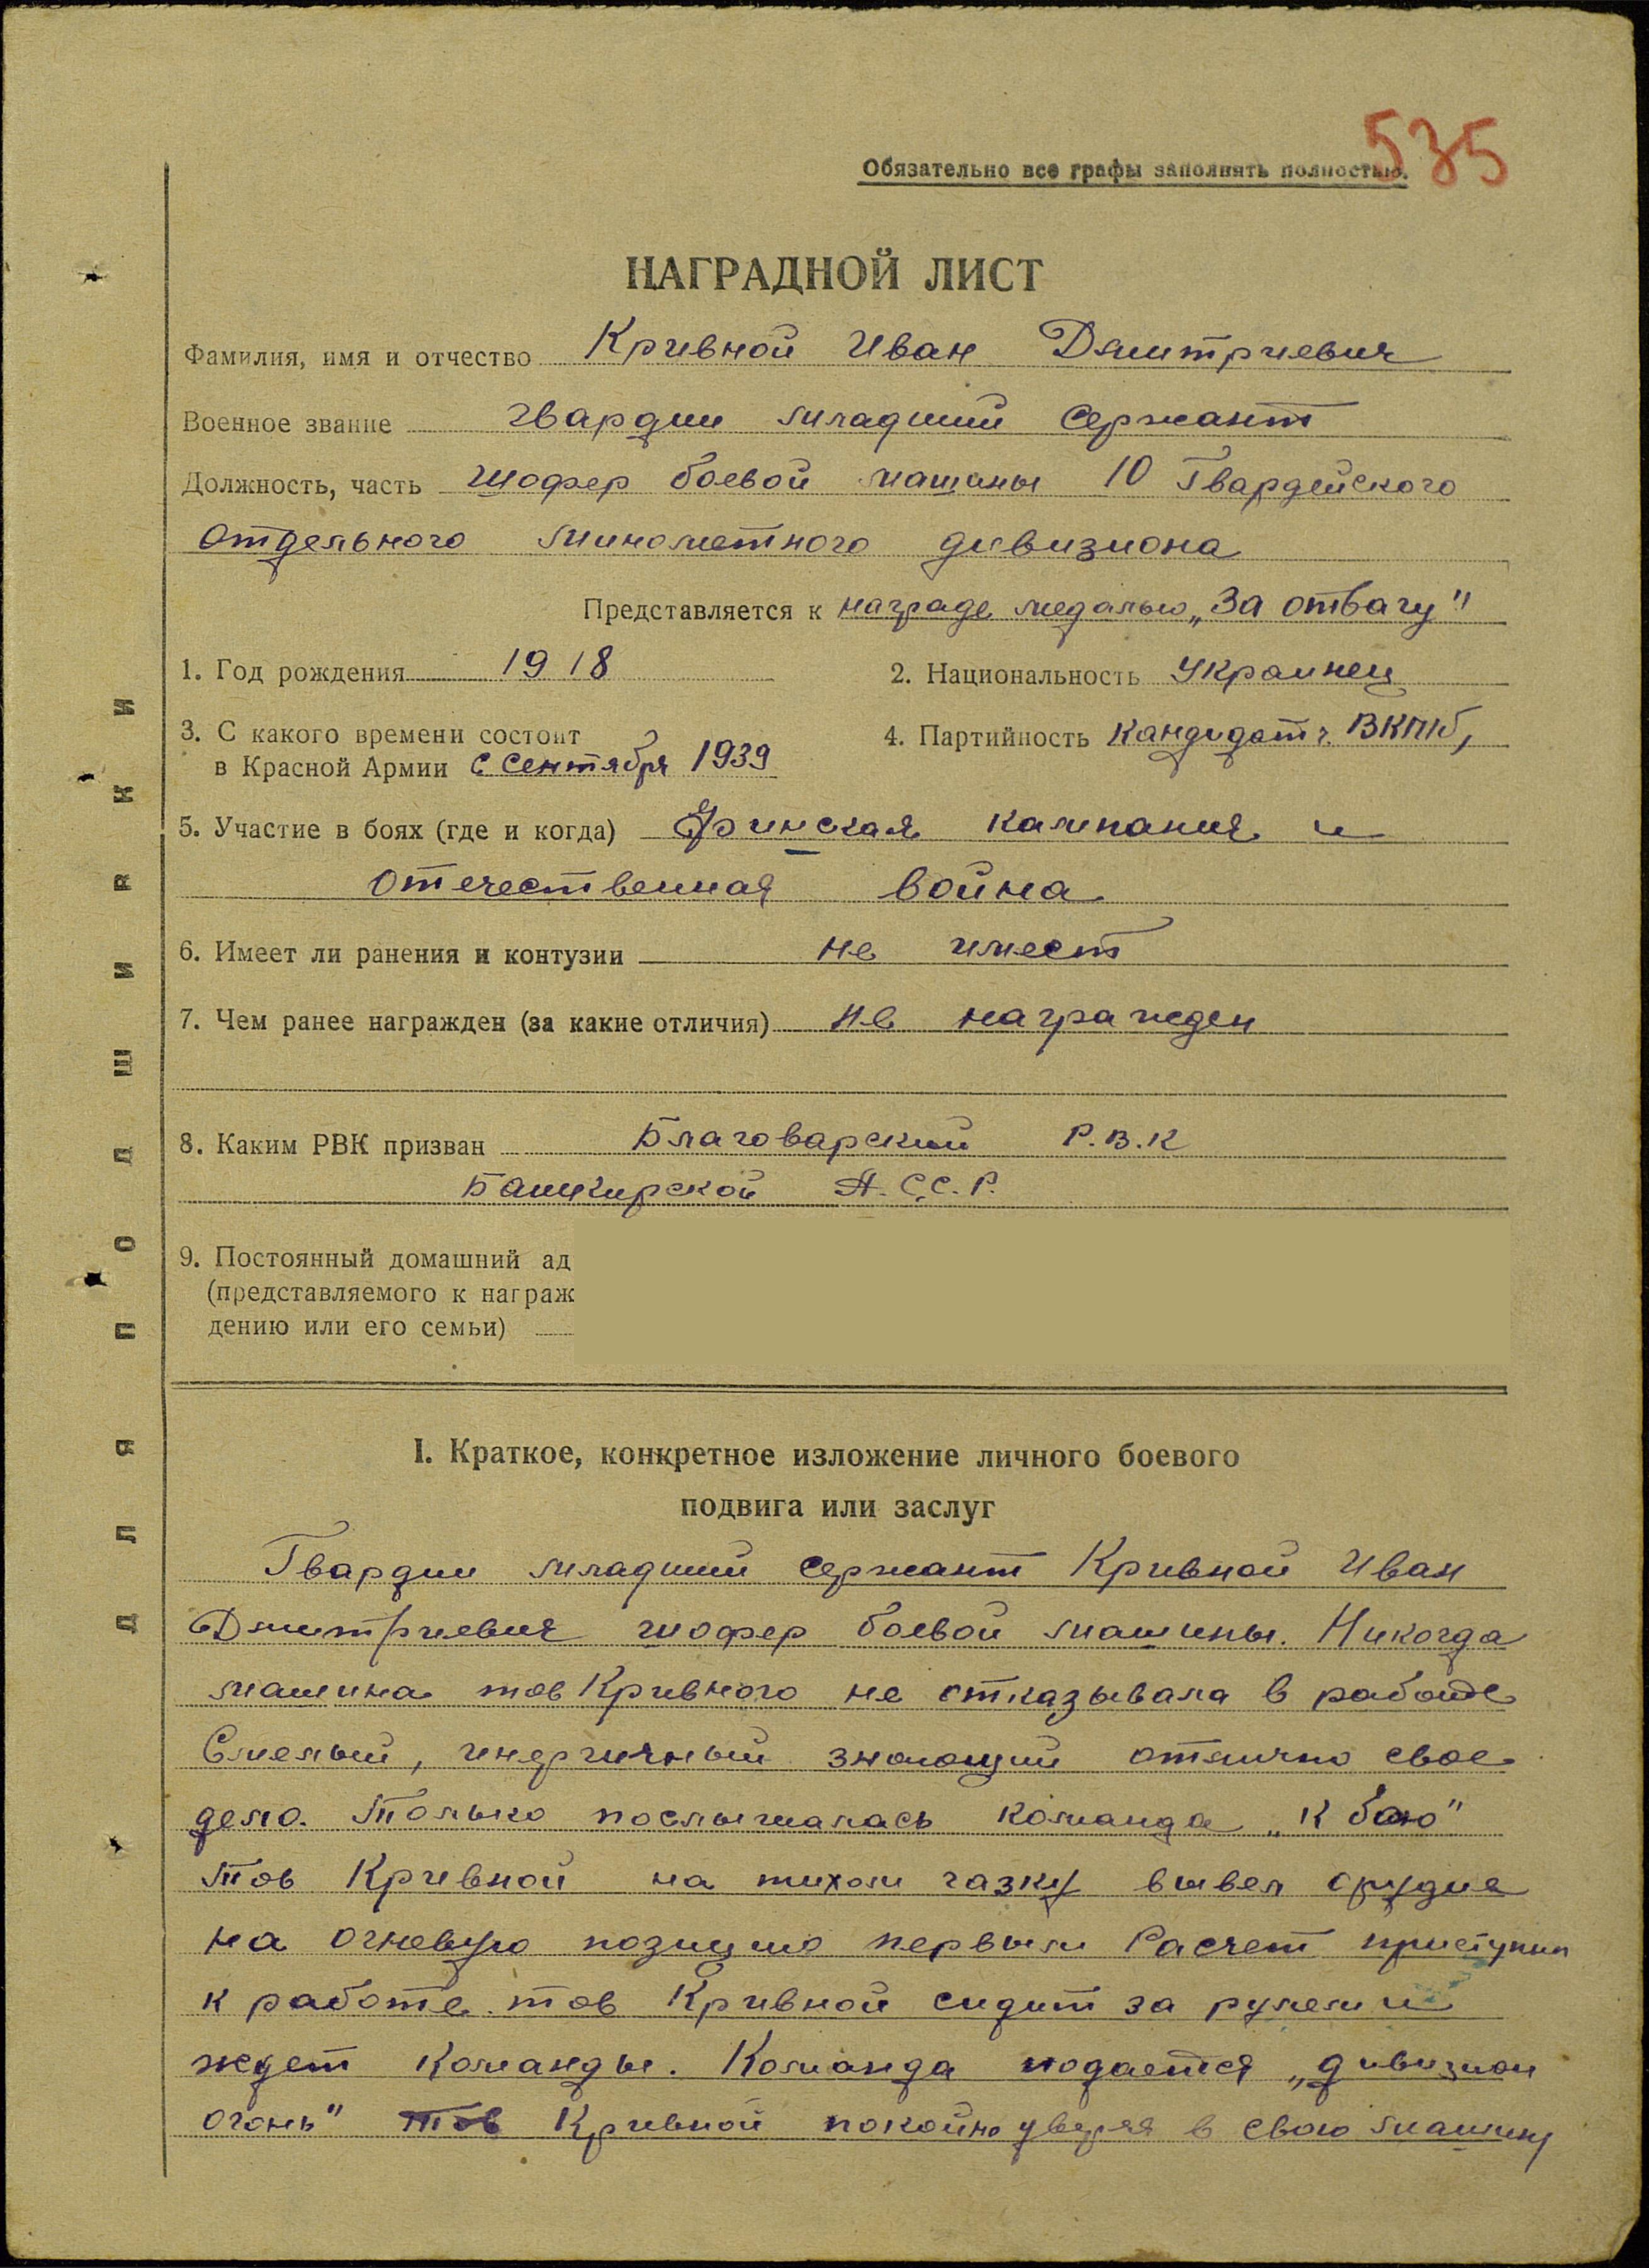 535
Обязательно все графы заполнять полностью.
НАГРАДНОЙ ЛИСТ
Фамилия, имя и отчество Кривной Иван Дмитриевич
Военное звание гвардии младший сержант
Должность, часть шофер боевой машины 10 Гвардейского
отдельного минометного дивизиона
Представляется к награде медалью „За отвагу"
1. Год рождения 1918
2. Национальность Украинец
3. С какого времени состоит
в Красной Армии С Сентября 1939
4. Партийность Кандидат ч. ВКП/б/
5. Участие в боях (где и когда) Финская кампания и
отечественная война
6. Имеет ли ранения и контузии не имеет
7. Чем ранее награжден (за какие отличия) не награжден
8. Каким РВК призван Благоварский Р.В.К
Башкирской А.С.С.Р.
9. Постоянный домашний ад
(представляемого к награж
дению или его семьи)
I. Краткое, конкретное изложение личного боевого
подвига или заслуг
Гвардии младший сержант Кривной Иван
Дмитриевич шофер боевой машины. Никогда
машина тов Кривного не отказывала в работе
Смелый, инергичный знающий отлично свое
дело. Только послышалась команда „К бою"
Тов Кривной на тихом газку вывел орудие
на огневую позицию первым Расчет приступил
к работе тов Кривной сидит за рулем и
ждет команды. Команда подается „дивизион
огонь" тов Кривной покойно уверяя в свою машину
для подшивки